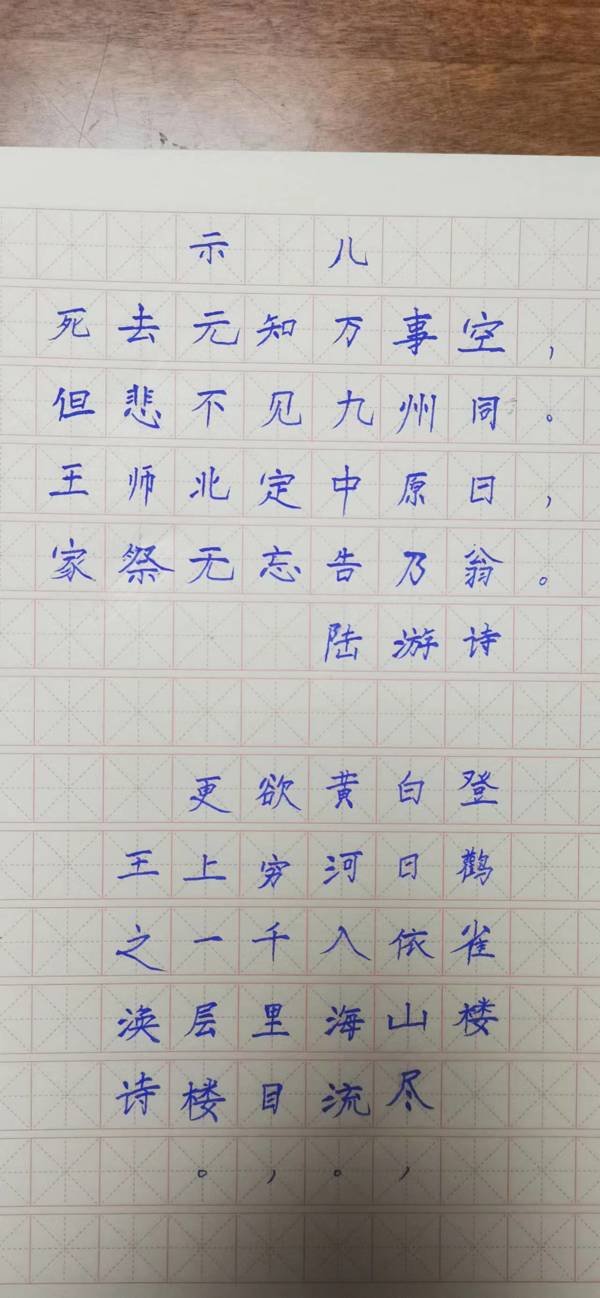 示儿
死去元知万事空，
但悲不见九州同。
王师北定中原日，
家祭无忘告乃翁。
陆游诗
登鹳雀楼
白日依山尽，
黄河入海流。
欲穷千里目，
更上一层楼。
王之涣诗